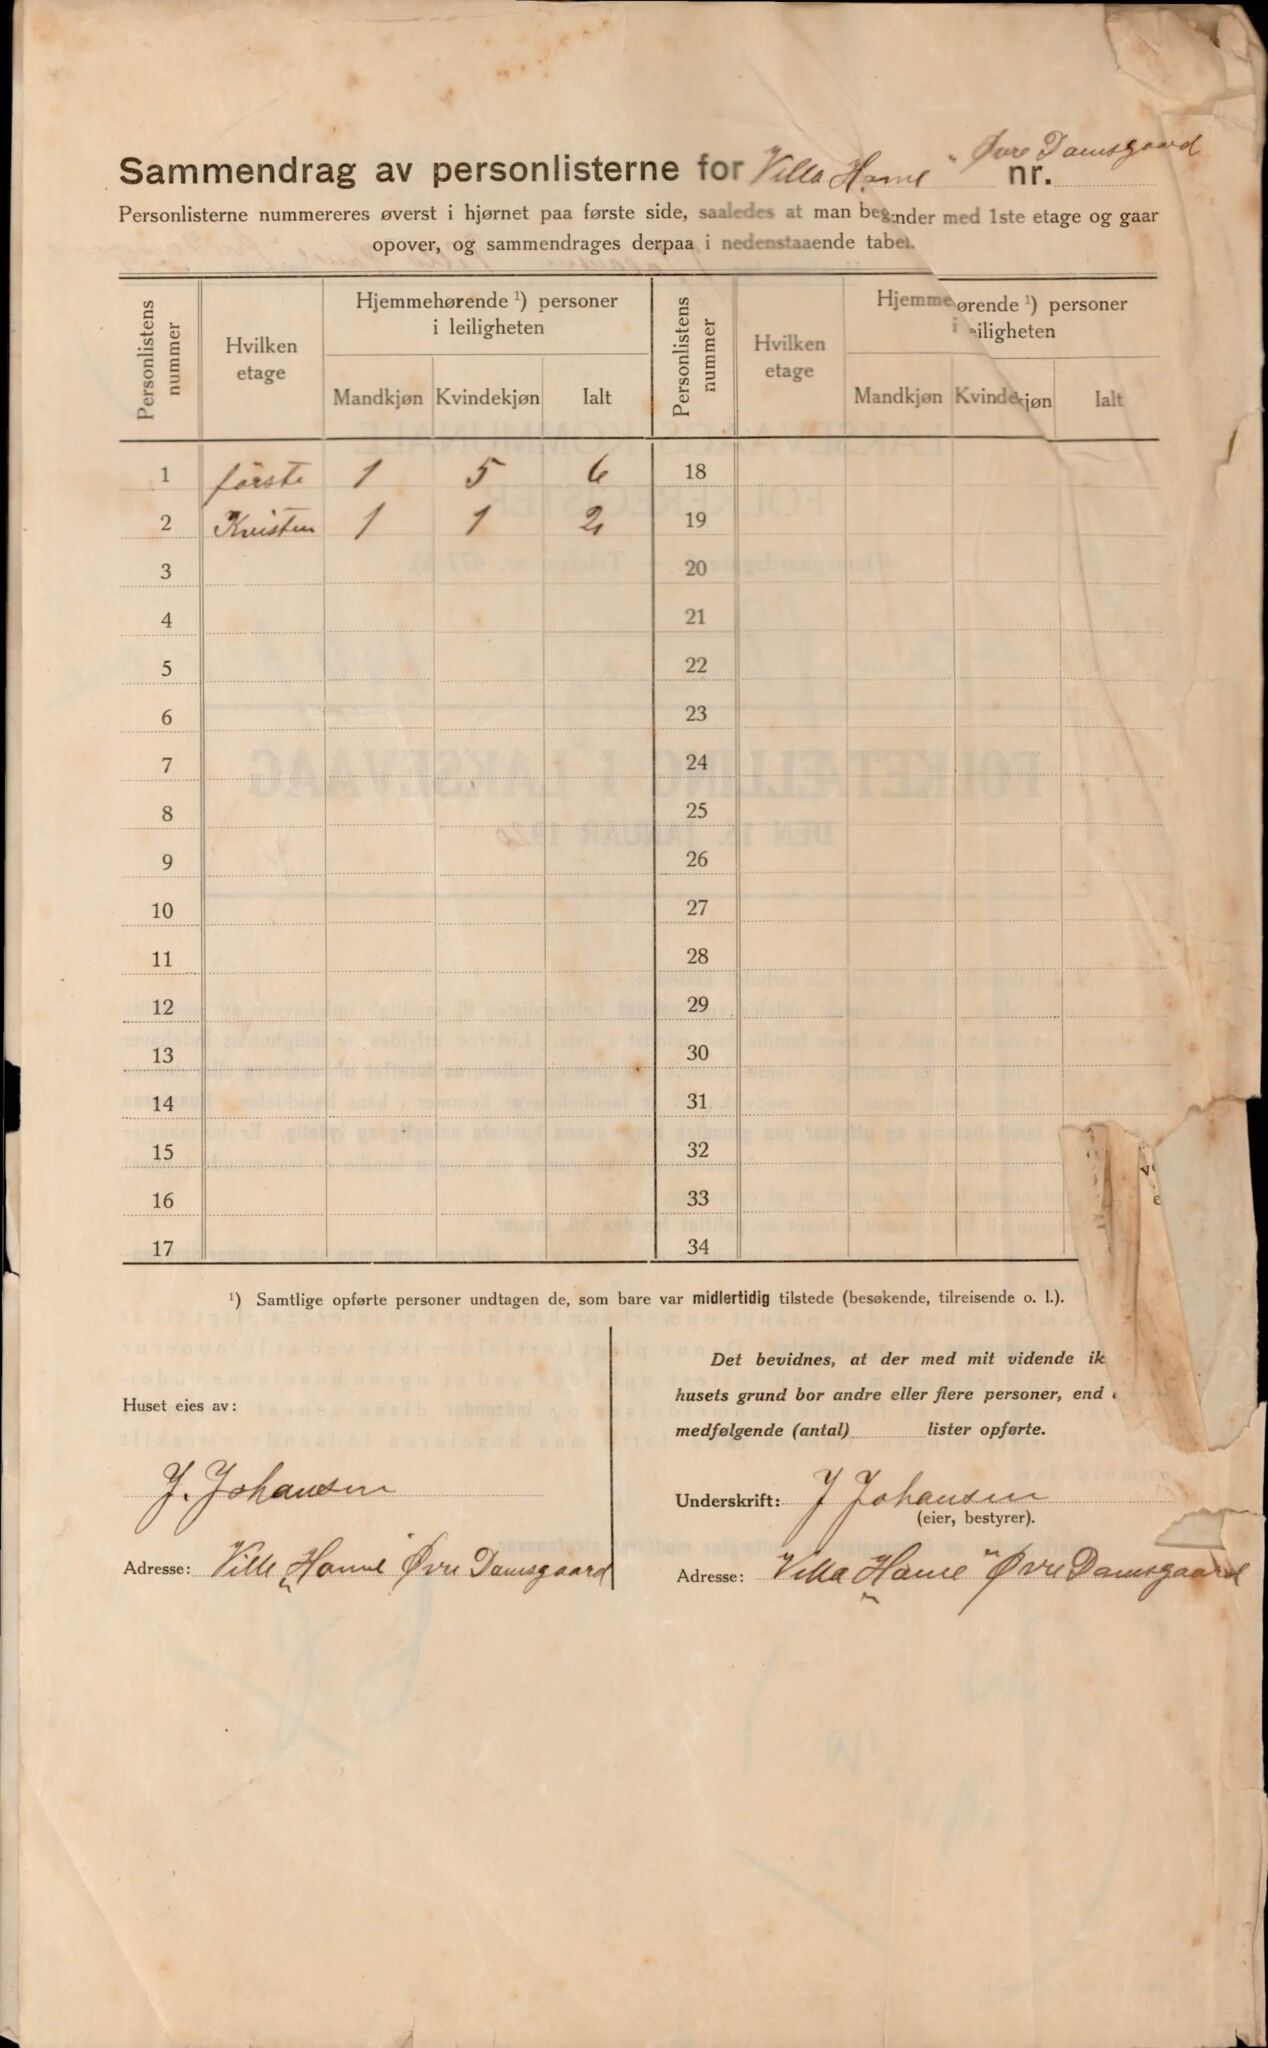 Sammendrag av personlisterne for Villa „Hanne" Øvre Damsgaard nr.
Personlisterne nummereres øverst i hjørnet paa første side, saaledes at man begynder med 1ste etage og gaar
opover, og sammendrages derpaa i nedenstaaende tabel.
Personlistens nummer | Hvilken etage | Hjemmehørende ¹) personer i leiligheten | Personlistens nummer | Hvilken etage | Hjemmehørende ¹) personer i leiligheten
Mandkjøn | Kvindekjøn | Ialt | Mandkjøn | Kvindekjøn | Ialt
1 første 1 5 6 18
2 Kvisten 1 1 2 19
3 20
4 21
5 22
6 23
7 24
8 25
9 26
10 27
11 28
12 29
13 30
14 31
15 32
16 33
17 34
¹) Samtlige opførte personer undtagen de, som bare var midlertidig tilstede (besøkende, tilreisende o. l.).
Huset eies av:
J. Johansen
Adresse: Villa „Hanne" Øvre Damsgaard
Det bevidnes, at der med mit vidende ik
husets grund bor andre eller flere personer, end
medfølgende (antal) lister opførte.
Underskrift: J Johansen
(eier, bestyrer).
Adresse: Villa „Hanne" Øvre Damsgaard